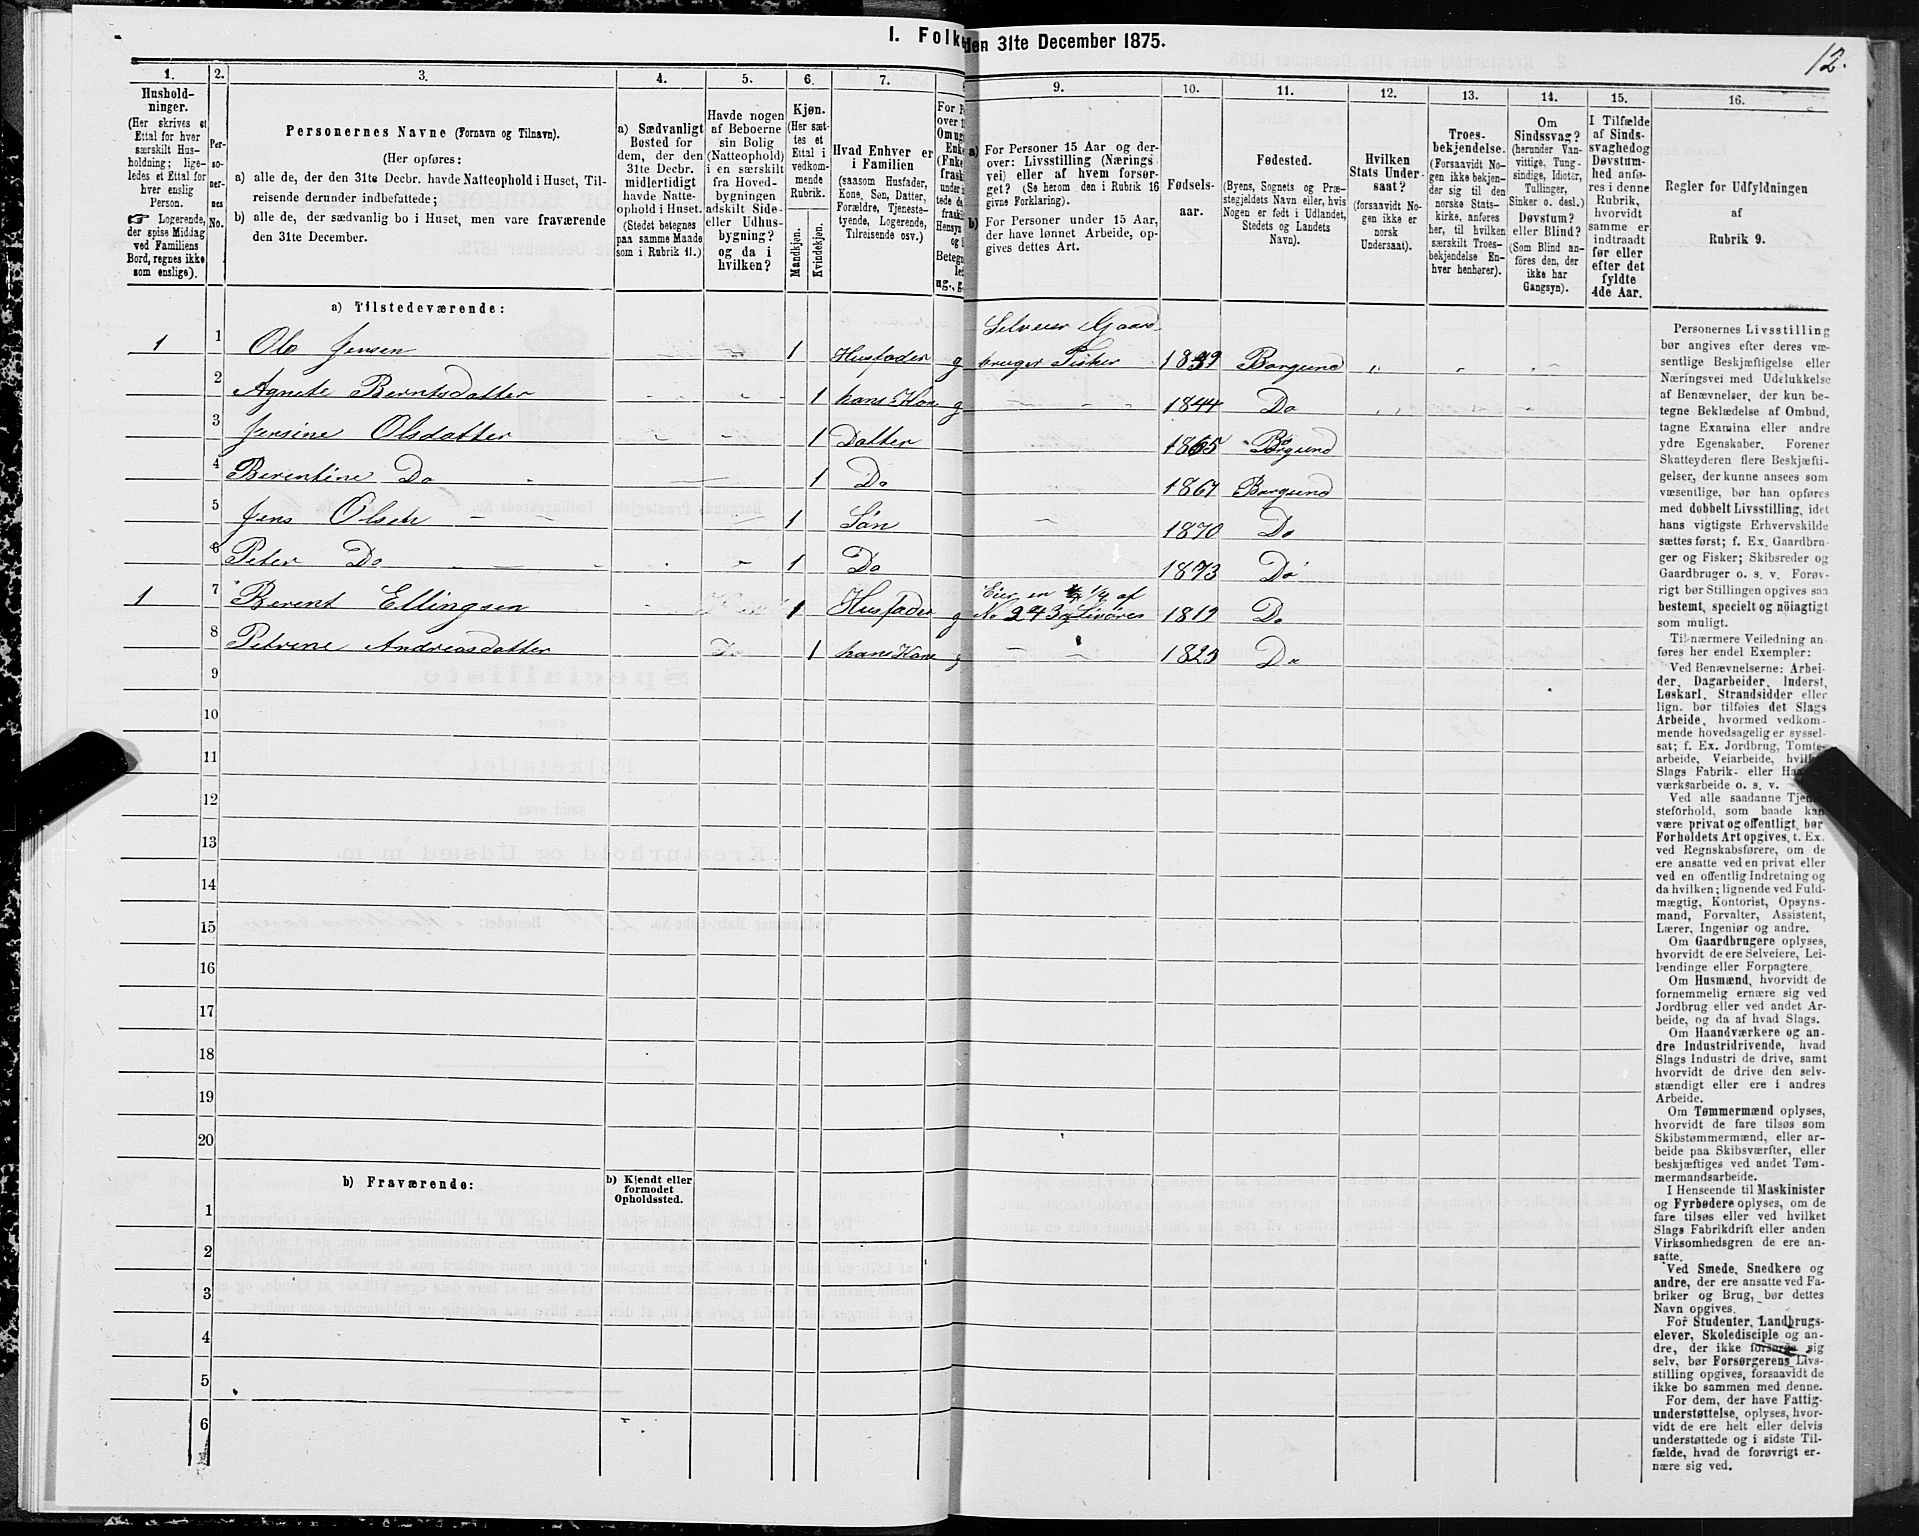 I. Folke
den 31te December 1875.
12.
1.
2.
3.
4.
5.
6.
7.
9.
10.
11.
12.
13.
14.
15.
16.
Hushold-
ninger.
(Her skrives et
Ettal for hver
særskilt Hus-
holdning; lige-
ledes et Ettal for
hver enslig
Person.
☞ Logerende,
der spise Middag
ved Familiens
Bord, regnes ikke
som enslige).
Per-
so-
ner-
nes
No.
Personernes Navne (Fornavn og Tilnavn).
(Her opføres:
a) alle de, der den 31te Decbr. havde Natteophold i Huset, Til-
reisende derunder indbefattede;
b) alle de, der sædvanlig bo i Huset, men vare fraværende
den 31te December.
a) Sædvanligt
Bosted for
dem, der den
31te Decbr.
midlertidigt
havde Natte-
ophold i Huset.
(Stedet betegnes
paa samme Maade
som i Rubrik 11.)
Havde nogen
af Beboerne
sin Bolig
(Natteophold)
i en særskilt
fra Hoved-
bygningen
adskilt Side-
eller Udhus-
bygning?
og da i
hvilken?
Kjøn.
(Her sæt-
tes et
Ettal i
vedkom-
mende
Rubrik.
Mandkjøn.
Kvindekjøn.
Hvad Enhver er
i Familien
(saasom Husfader,
Kone, Søn, Datter,
Forældre, Tjeneste-
tyende, Logerende,
Tilreisende osv.)
a) For Personer 15 Aar og der-
over: Livsstilling (Nærings-
vei) eller af hvem forsør-
get? (Se herom den i Rubrik 16
givne Forklaring).
b) For Personer under 15 Aar,
der have lønnet Arbeide, op-
gives dettes Art.
Fødsels-
aar.
Fødested.
(Byens, Sognets og Præ-
stegjeldets Navn eller, hvis
Nogen er født i Udlandet,
Stedets og Landets
Navn).
Hvilken
Stats Under-
saat?
(forsaavidt No-
gen ikke er
norsk
Undersaat).
Troes-
bekjendelse.
(Forsaavidt No-
gen ikke bekjen-
der sig til den
norske Stats-
kirke, anføres
her, til hvilken
særskilt Troes-
bekjendelse En-
hver henhører).
Om
Sindssvag?
(herunder Van-
vittige, Tung-
sindige, Idioter,
Tullinger,
Sinker o. desl.)
Døvstum?
eller Blind?
(Som Blind an-
føres den, der
ikke har
Gangsyn).
I Tilfælde
af Sinds-
svaghedog
Døvstum-
hed anfø-
res i denne
Rubrik,
hvorvidt
samme er
indtraadt
før eller
efter det
fyldte
4de Aar.
Regler for Udfyldningen
af
Rubrik 9.
a) Tilstedeværende:
1 1 Ole Jensen 1 Husfader g Selveier Gaard-
bruger Fisker 1839 Borgund
2 Agnete Berntsdatter 1 hans Kone g 1844 Do
3 Jensine Olsdatter 1 Datter 1865 Borgund
4 Berentine Do 1 Do 1867 Borgund
5 Jens Olsen 1 Søn 1870 Do
6 Peter Do 1 Do 1873 Do
1 7 Berent Ellingsen 1 Husfader g Eier en 1/4 af
No 243 1819 Do
8 Petrine Andreasdatter Do 1 hans Kone g 1823 Do
9
10
11
12
13
14
15
16
17
18
19
20
b) Fraværende:
b) Kjendt eller
formodet
Opholdssted.
1
2
3
4
5
6
Personernes Livsstilling
bør angives efter deres væ-
sentlige Beskjæftigelse eller
Næringsvei med Udelukkelse
af Benævnelser, der kun be-
tegne Beklædelse af Ombud,
tagne Examina eller andre
ydre Egenskaber. Forener
Skatteyderen flere Beskjæfti-
gelser, der kunne ansees som
væsentlige, bør han opføres
med dobbelt Livsstilling, idet
hans vigtigste Erhvervskilde
sættes først; f. Ex. Gaardbru-
ger og Fisker; Skibsreder og
Gaardbruger o. s. v. Forøv-
rigt bør Stillingen opgives saa
bestemt, specielt og nøiagtigt
som muligt.
Tilnærmere Veiledning an-
føres her endel Exempler:
Ved Benævnelserne: Arbei-
der, Dagarbeider, Inderst,
Løskarl, Strandsidder eller
lign. bør tilføies det Slags
Arbeide, hvormed vedkom-
mende hovedsagelig er syssel-
sat; f. Ex. Jordbrug, Tomte-
arbeide, Veiarbeide, hvilket
Slags Fabrik- eller Haand-
værksarbeide o. s. v.
Ved alle saadanne Tjene-
steforhold, som baade kan
være privat og offentligt, bør
Forholdets Art opgives, t. Ex.
ved Regnskabsførere, om de
ere ansatte ved en privat eller
ved en offentlig Indretning og
da hvilken; lignende ved Fuld-
mægtig, Kontorist, Opsyns-
mand, Forvalter, Assistent,
Lærer, Ingeniør og andre.
Om Gaardbrugere oplyses,
hvorvidt de ere Selveiere, Lei-
lændinge eller Forpagtere.
Om Husmænd, hvorvidt de
fornemmelig ernære sig ved
Jordbrug eller ved andet Ar-
beide, og da af hvad Slags.
Om Haandværkere og an-
dre Industridrivende, hvad
Slags Industri de drive, samt
hvorvidt de drive den selv-
stændigt eller ere i andres
Arbeide.
Om Tømmermænd oplyses,
hvorvidt de fare tilsøs som
Skibstømmermænd, eller ar-
beide paa Skibsværfter, eller
beskjæftiges ved andet Tøm-
mermandsarbeide.
I Henseende til Maskinister
og Fyrbødere oplyses, om de
fare tilsøs eller ved hvilket
Slags Fabrikdrift eller anden
Virksomhedsgren de ere an-
satte.
Ved Smede, Snedkere og
andre, der ere ansatte ved Fa-
briker og Brug, bør dettes
Navn opgives.
For Studenter, Landbrugs-
elever, Skoledisciple og an-
dre, der ikke forsørge sig
selv, bør Forsørgerens Livs-
stilling opgives, forsaavidt de
ikke bo sammen med denne.
For dem, der have Fattig-
understøttelse, oplyses, hvor-
vidt de ere helt eller delvis
understøttede og i sidste Til-
fælde, hvad de forøvrigt er-
nære sig ved.